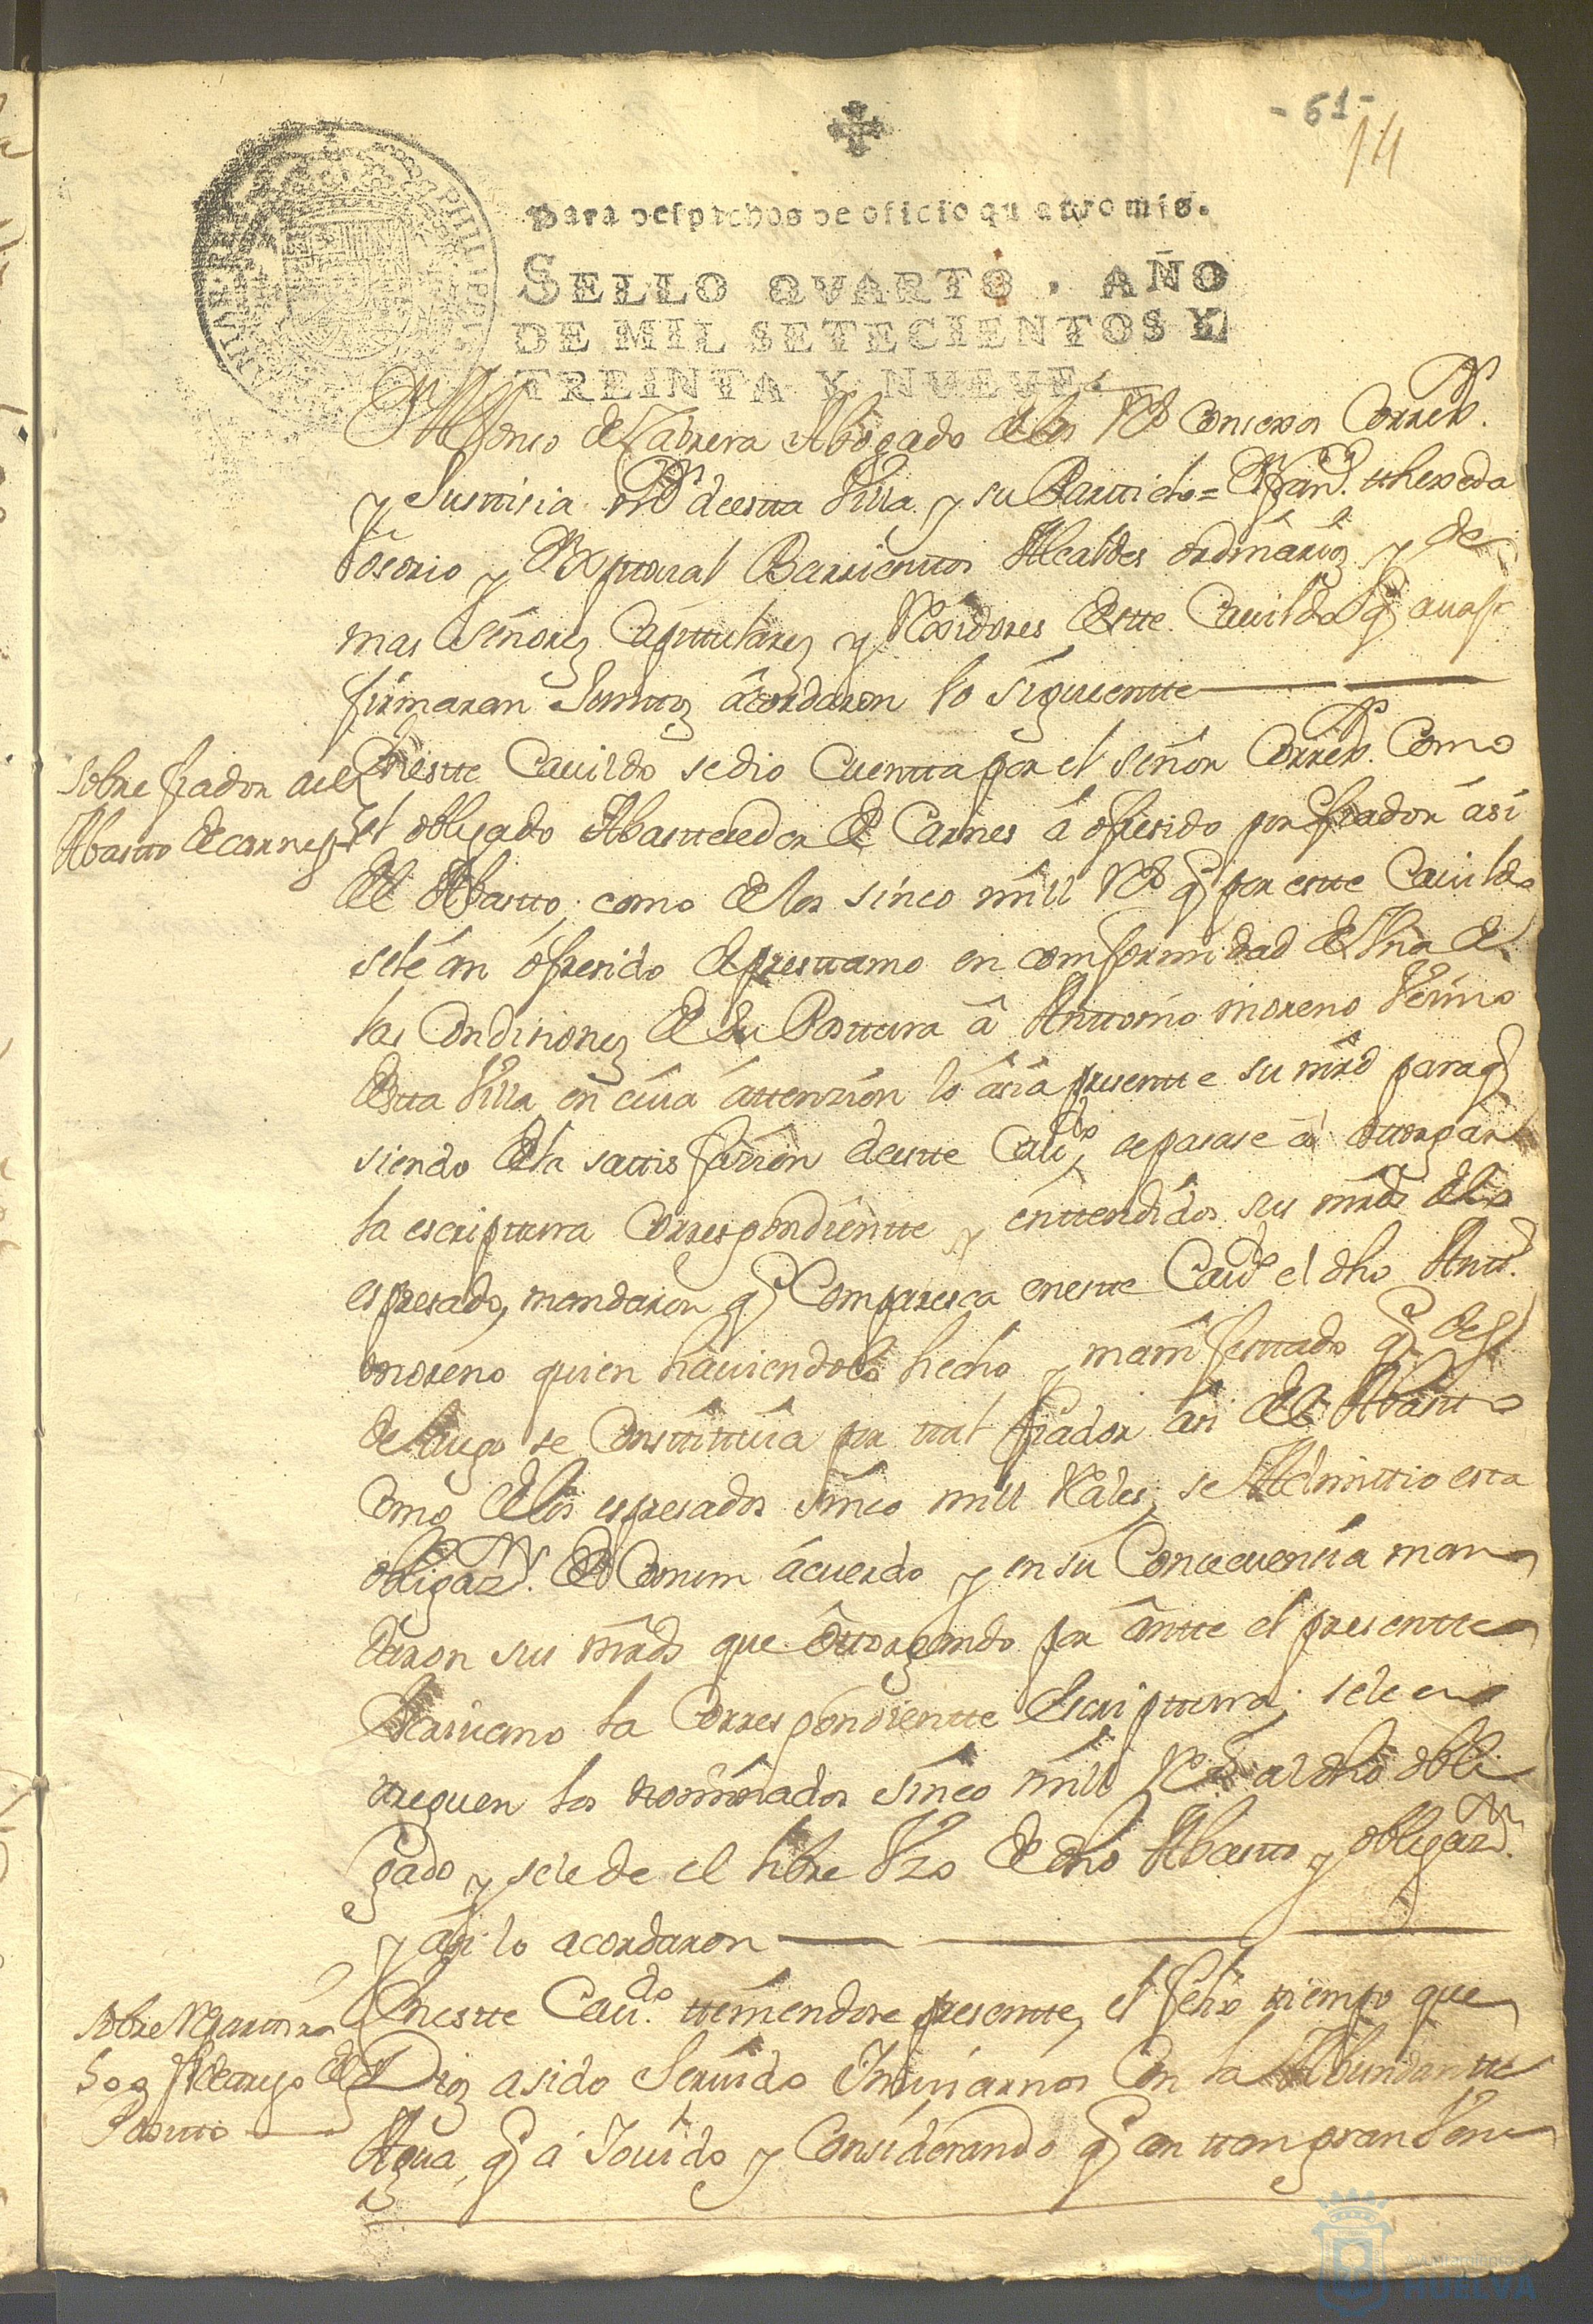 - 61 -
14
Para despachos de oficio quatro mrs.
SELLO QVARTO, AÑO
DE MIL SETECIENTOS Y
TREINTA Y NUEVE.
PHILIPPVS
Dn Alfonso de Cabrera Abogado de los Rs Consexos Corregr.
y Justtisia mr desta Villa y su Parttido = Dn Franco. thexeda
osorio y Dn Xptoual Barrienttos Alcaldes ordinarios y de
mas señores Capittulares y Rexidores deste Cauildo q auajo
firmaran Junttos acordaron lo siguientte
Sobre fiador del
Abastto de carnes
Enestte Cauildo se dio Cuentta por el señor Corregr. Como
el obligado Abasttecedor de Carnes a ofresido por fiador asi
del Abastto, como de los sinco mill Rs q por estte Cauildo
sele an ofresido de presttamo en comformidad de Vna de
las Condisiones de su Posttura a Anttonio moreno Vesino
destta Villa en cuia attenzion lo asia presentte su mrd para q
siendo de la sattisfazion deestte Caudo, se pasase a ottorgar
la escripttura Correspondientte y enttendidos sus mrds de lo
espresado, mandaron q Comparesca enestte Caudo el dho Antto.
moreno quien hauiendolo hecho y manifesttado q desde
de luego se Consttittuia por ttal fiador asi del Abastto
Como de los espresados sinco mill Rales, se Admittio esta
obligazn. de Comun acuerdo y en su Consecuensia man
daron sus mrds que ottorgando por antte el presentte
Escriuano la Correspondientte Escripttura, sele en
ttreguen los nominados sinco mill Rs al dho obli
gado y sele de el libre Vzo de dho Abastto y obligazn.
y asi lo acordaron
Sobre
Positto
Enestte Caudo. tteniendose presentte, el felis ttiempo que
Dios a sido Seruido Inuiarnos Con la Abundantte
Agua, q a Jouido y Considerando q en ttan gran
HUELVA